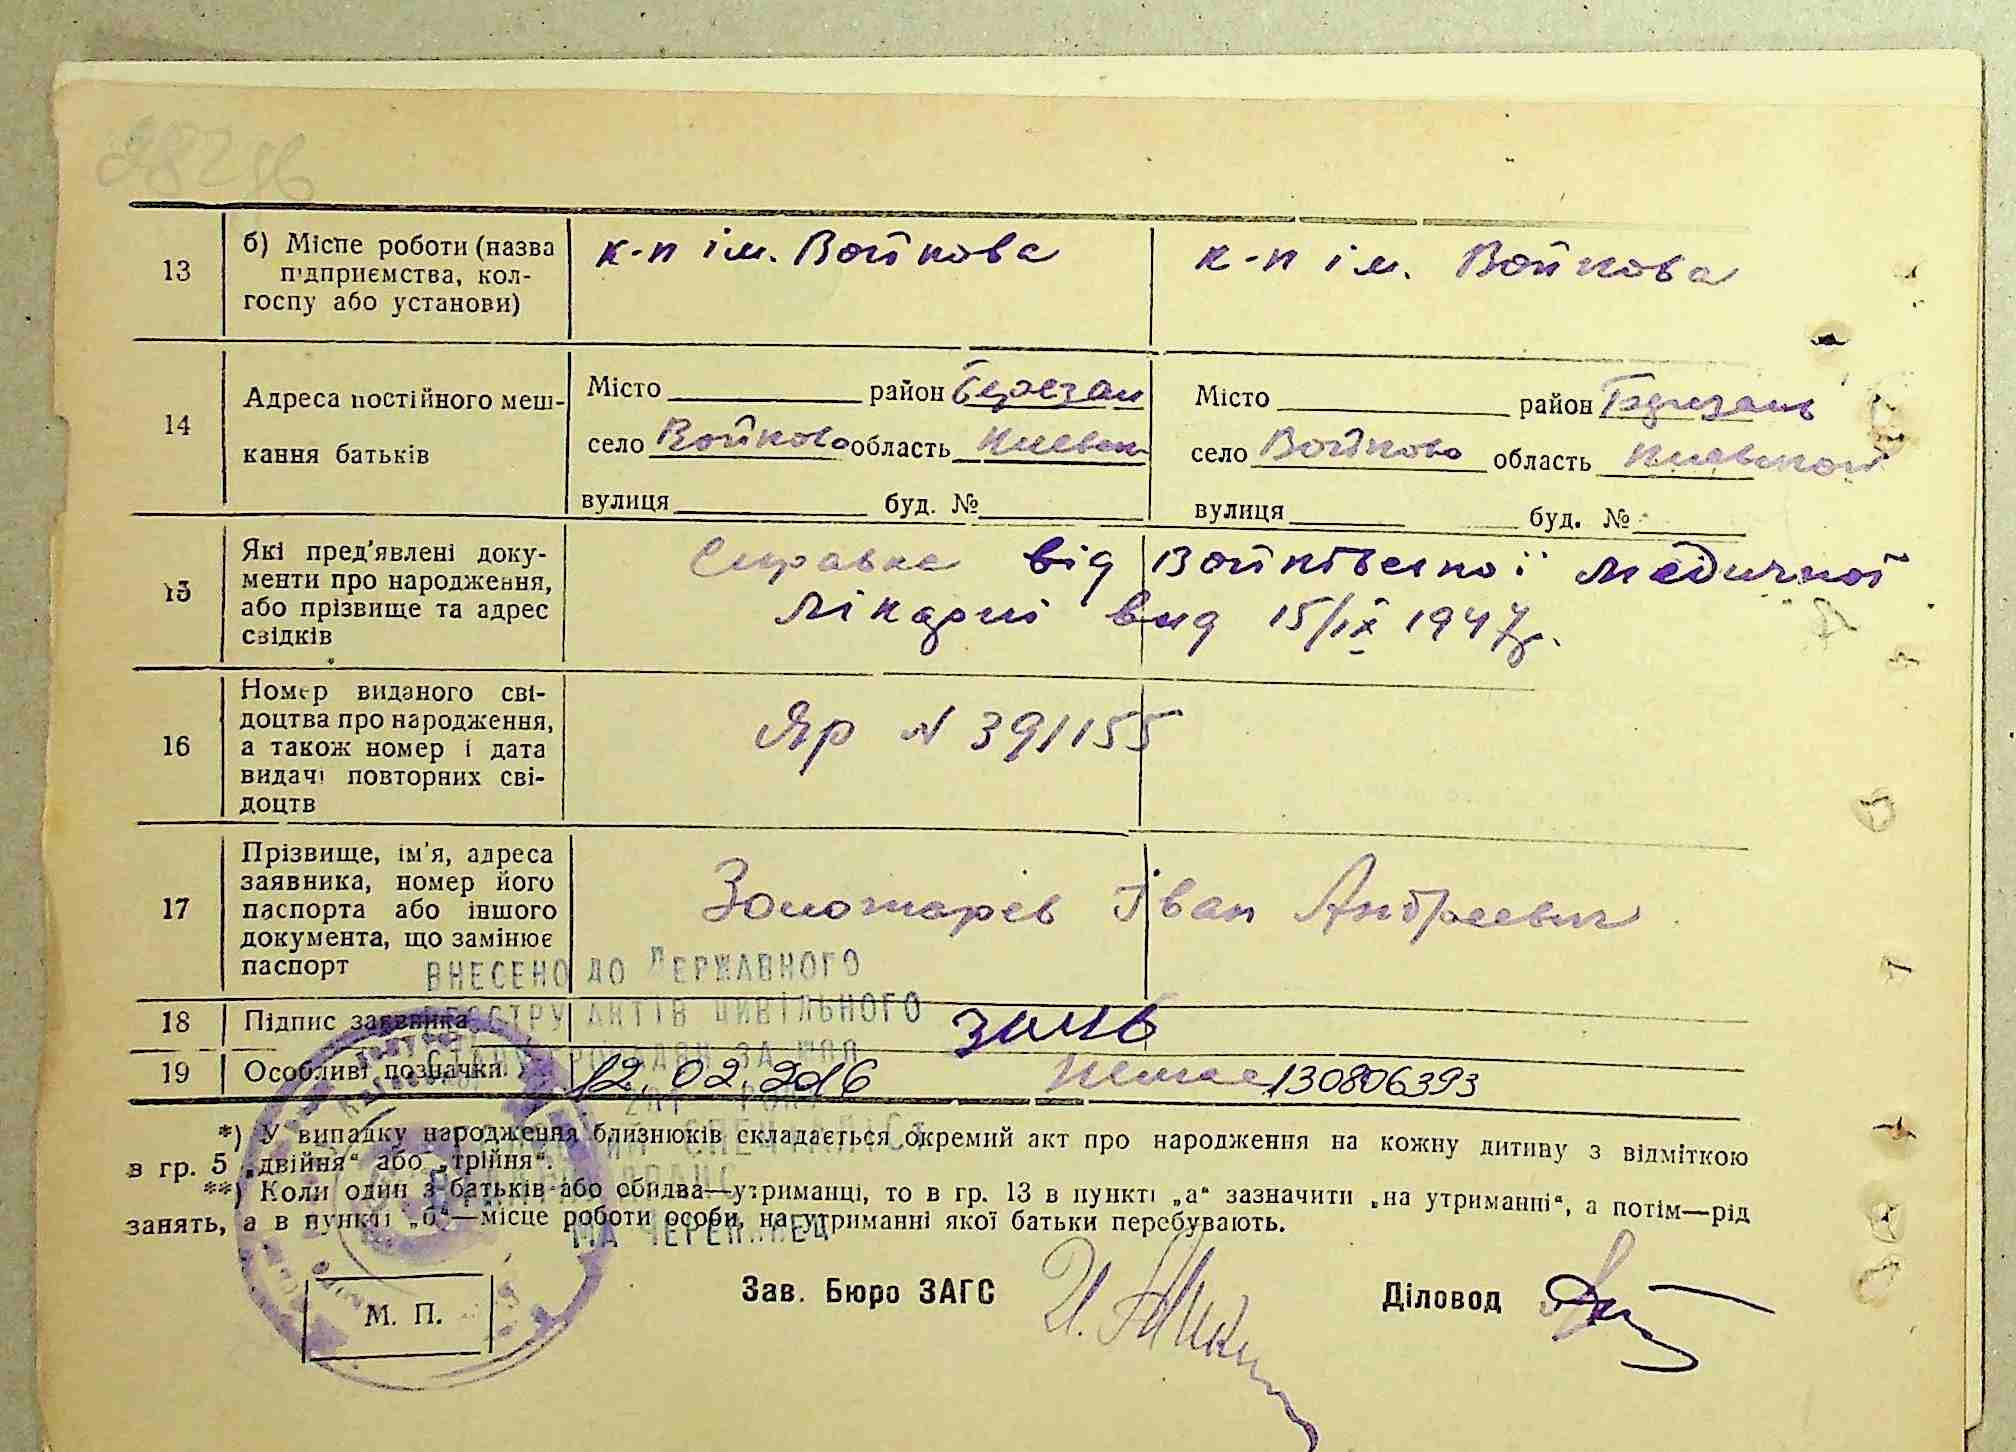 13
б) Місце роботи (назва
підприємства, кол-
госпу або установи)
к-п ім. Войкова
к-п ім. Войкова
14
Адреса постійного меш-
кання батьків
Місто район Березан
село Войково область Киевск
вулиця буд. №
Місто район Березань
село Войково область Киевской
вулиця буд. №
15
Які пред'явлені доку-
менти про народження,
або прізвище та адрес
свідків
Справка від Войківської медичной
лікарні вид 15/IX 1947 г.
16
Номер виданого сві-
доцтва про народження,
а також номер і дата
видачі повторних сві-
доцтв
Яр N 391155
17
Прізвище, ім'я, адреса
заявника, номер його
паспорта або іншого
документа, що замінює
паспорт
Золотарев Іван Андреевич
ВНЕСЕНО ДО ДЕРЖАВНОГО
РЕЄСТРУ АКТІВ ЦИВІЛЬНОГО
СТАНУ ГРОМАДЯН ЗА №
18
Підпис заявника
19
Особливі позначки
12.02.2016
130806393
СПЕЦІАЛІСТ
*) У випадку народження близнюків складається окремий акт про народження на кожну дитину з відміткою
в гр. 5 „двійня“ або „трійня“.
**) Коли один з батьків або обидва—утриманці, то в гр. 13 в пункті „а“ зазначити „на утриманні“, а потім—рід
занять, а в пункті „б“—місце роботи особи, на утриманні якої батьки перебувають.
М. П.
Зав. Бюро ЗАГС
Діловод